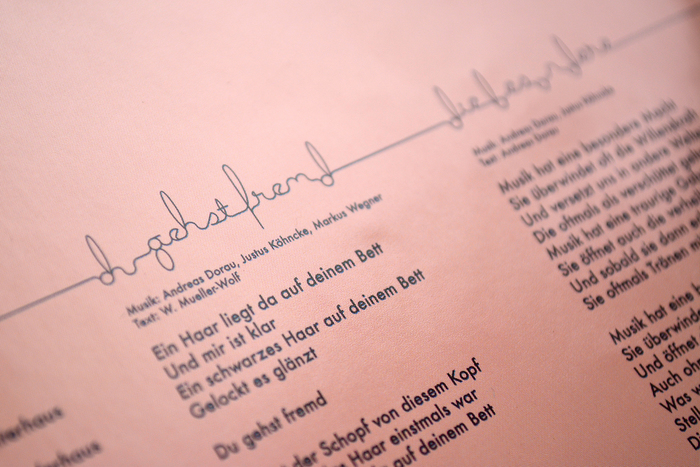 du gehst fremd
Musik: Andreas Dorau, Justus Köhncke, Markus Wegner
Text: W. Mueller-Wolf
Ein Haar liegt da auf deinem Bett
Und mir ist klar
Ein schwarzes Haar auf deinem Bett
Gelockt es glänzt
Du gehst fremd
der Schopf von diesem Kopf
Haar einstmals war
auf deinem Bett
Musik: Andreas Dorau, Justus Köhncke
Text: Andreas Dorau
Musik hat eine besondere Macht
Sie überwindet oft die Willenskraft
Und versetzt uns in andere
Die oftmals als verschüttet
Musik hat eine traurige
Sie öffnet auch die
Und sobald sie dann
Sie oftmals Tränen
Musik hat eine
Sie
Und öffnet
Auch
Was